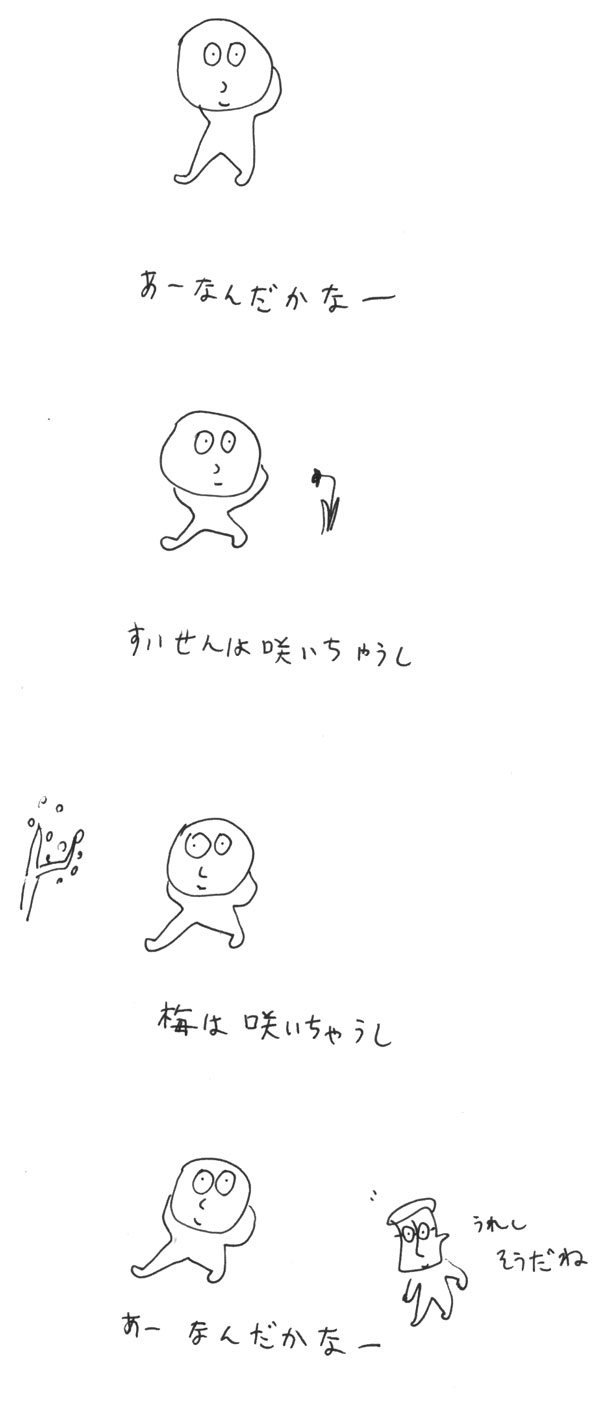 あーなんだかなー
すいせんは咲いちゃうし
梅は咲いちゃうし
うれし
そうだね
あー なんだかなー